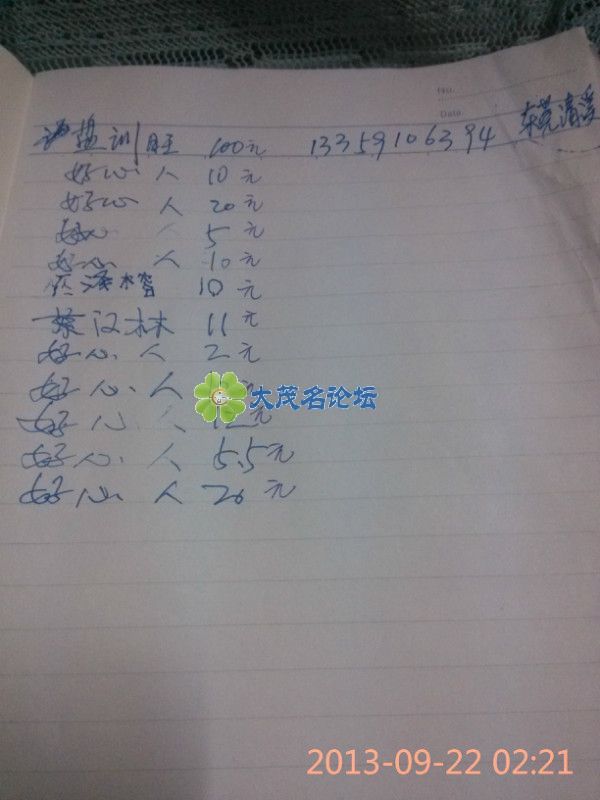 No.
Date.
训旺 100元 13359106394 东莞清溪
好心人 10元
好心人 20元
好心人 5元
好心人 10元
10元
蔡汉林 11元
好心人 2元
好心人 元
大茂名论坛
好心人 元
好心人 5.5元
好心人 20元
2013-09-22 02:21